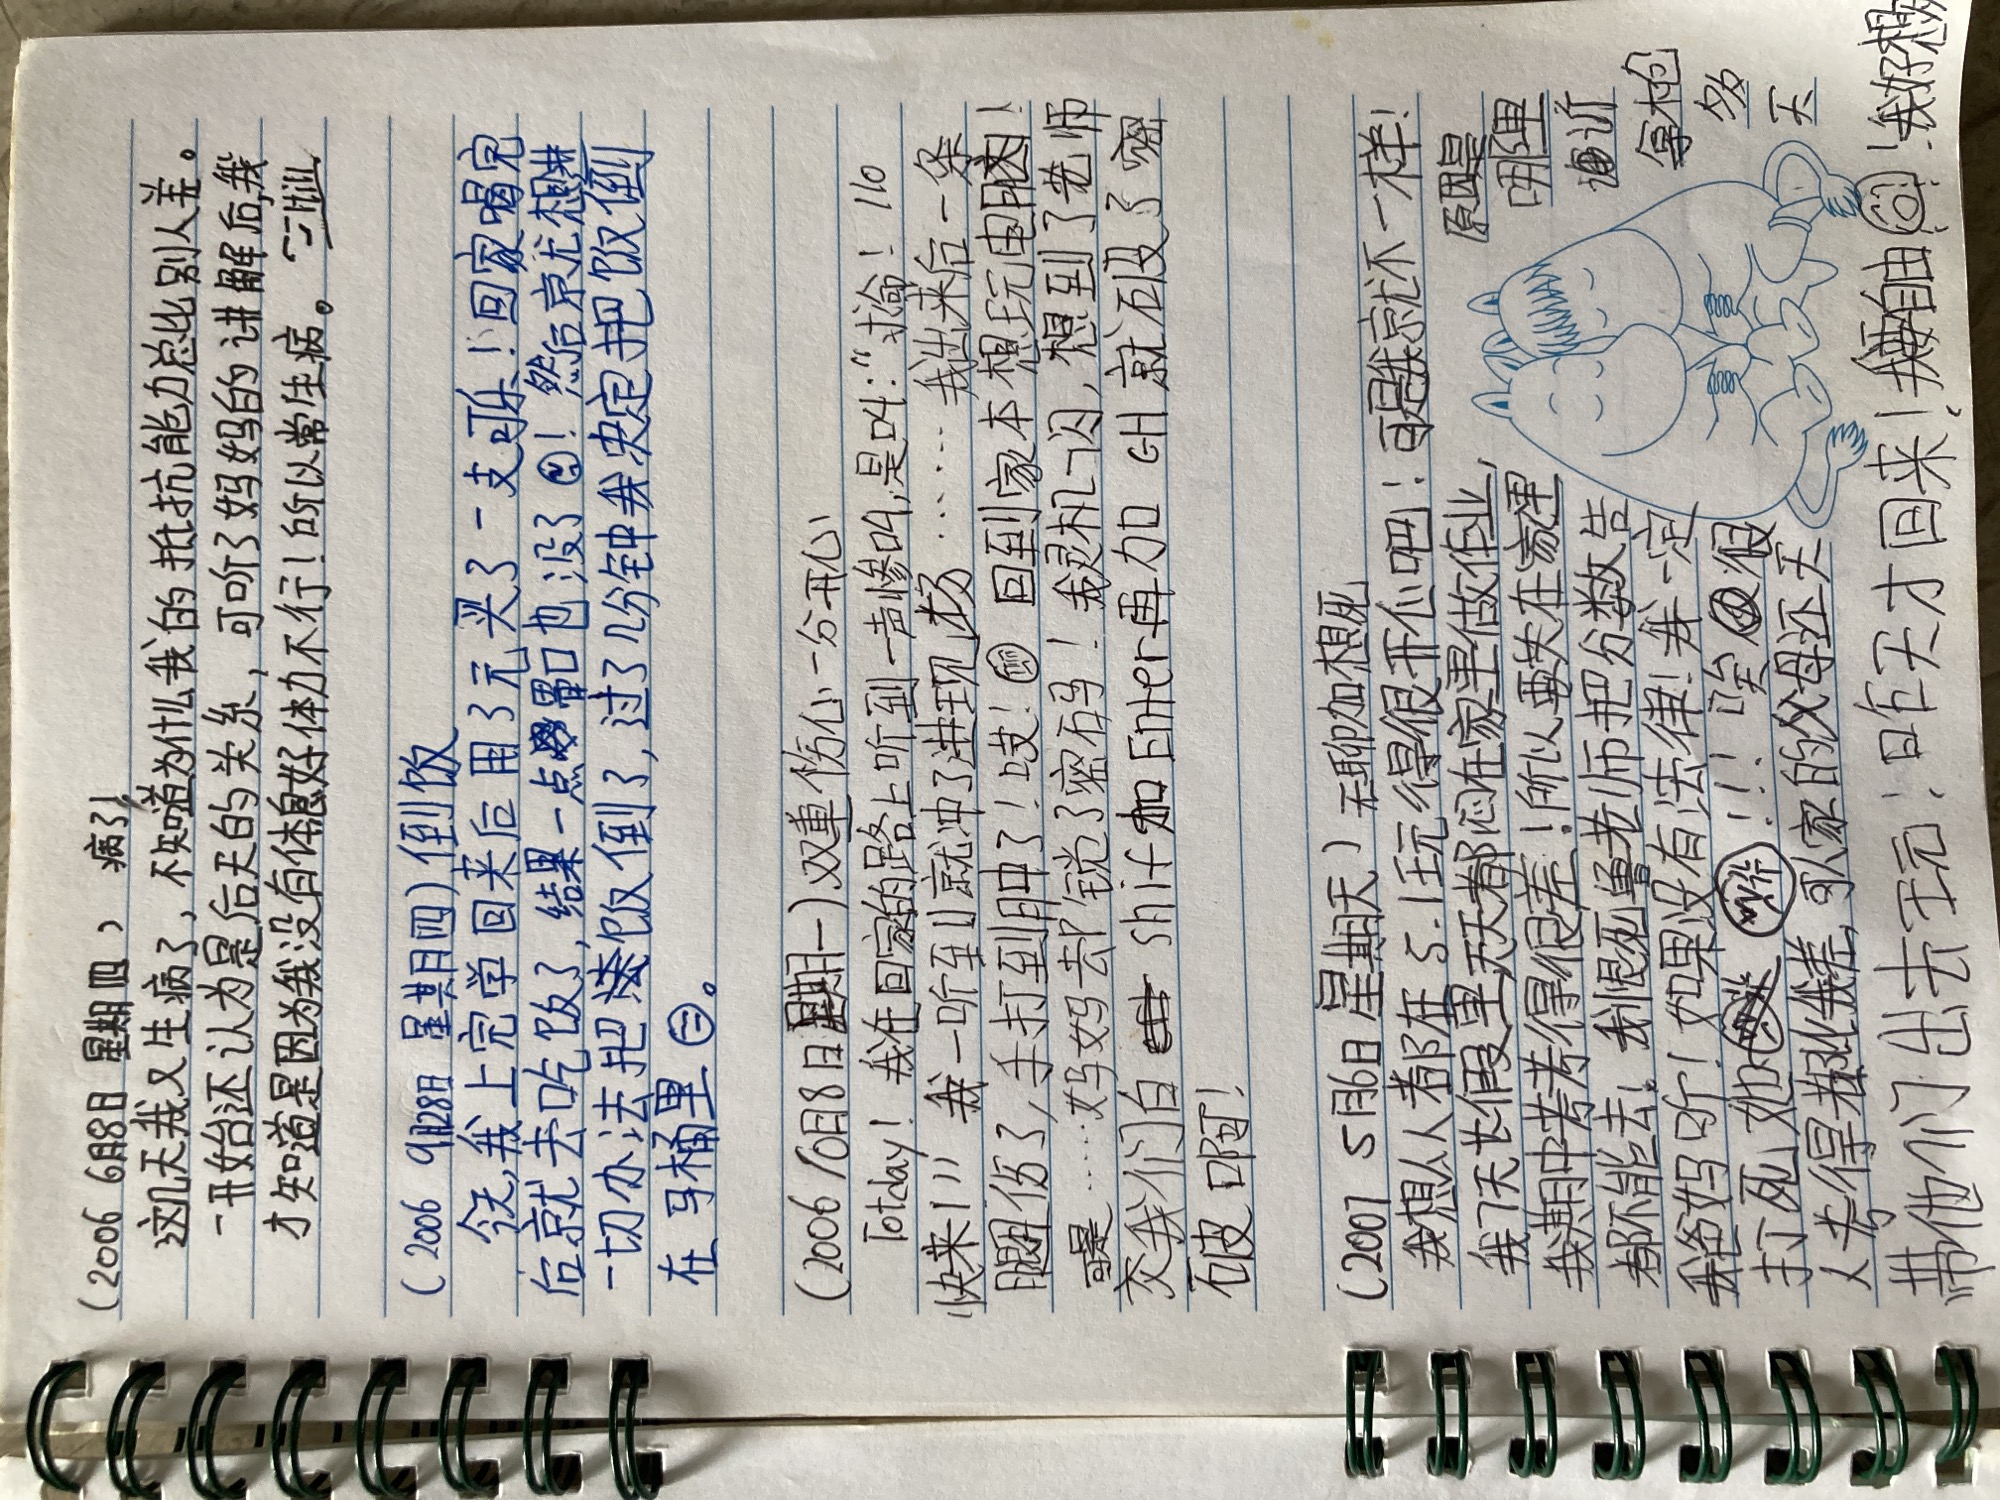 (2006 6月8日 星期四) 病了!
这几天我又生病了,不知道为什么我的抵抗能力总比别人差。
一开始还认为是后天的关系,可听了妈妈的讲解后,我
才知道是因为我没有休息好体力不行!所以常生病。
(2006 9月28日 星期四)倒饭
今天,我上完学回来后用3元买了一支可乐!回家喝完
后就去吃饭了,结果一点胃口也没了!然后就尤想
一切办法把饭倒了,过了几分钟我决定把饭倒
在马桶里。
(2006 10月8日星期一)双重伤心一分开心
Totday!我在回家的路上听到一声惨叫,是叫:“抢!110
快来!”我一听到就冲了进现场……我出来后一条
腿伤了,手打到月中了!哎!回到家本想玩电脑!
可是……妈妈去锐了密石马!我灵机一闪,想到了老师
交我们白 shif加Enter再加cH就石皮了密
石皮口阿!
(2007 5月6日 星期天)无聊加想死
我想人人都在5.1玩得很开心吧!可是我就不一样!
我7天长假里天天都闷在家里做作业,原因是
我期中考考得很差!所以要失在家里哪里
都不能去!我恨死老师把分数告诉
我爸妈听!如果没有法律!我一定拿枪
打死她!!!唉假多
人考得都比我差,可人家的父母还天天
带他们出去玩!昨天才回来!我要自由!我好想